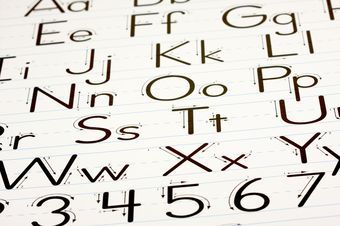 Aa
Ee Ff Gg
Ii Jj Kk Ll
Nn Oo Pp
rr Ss Tt U
Ww Xx Yy
3 4 5 6 7